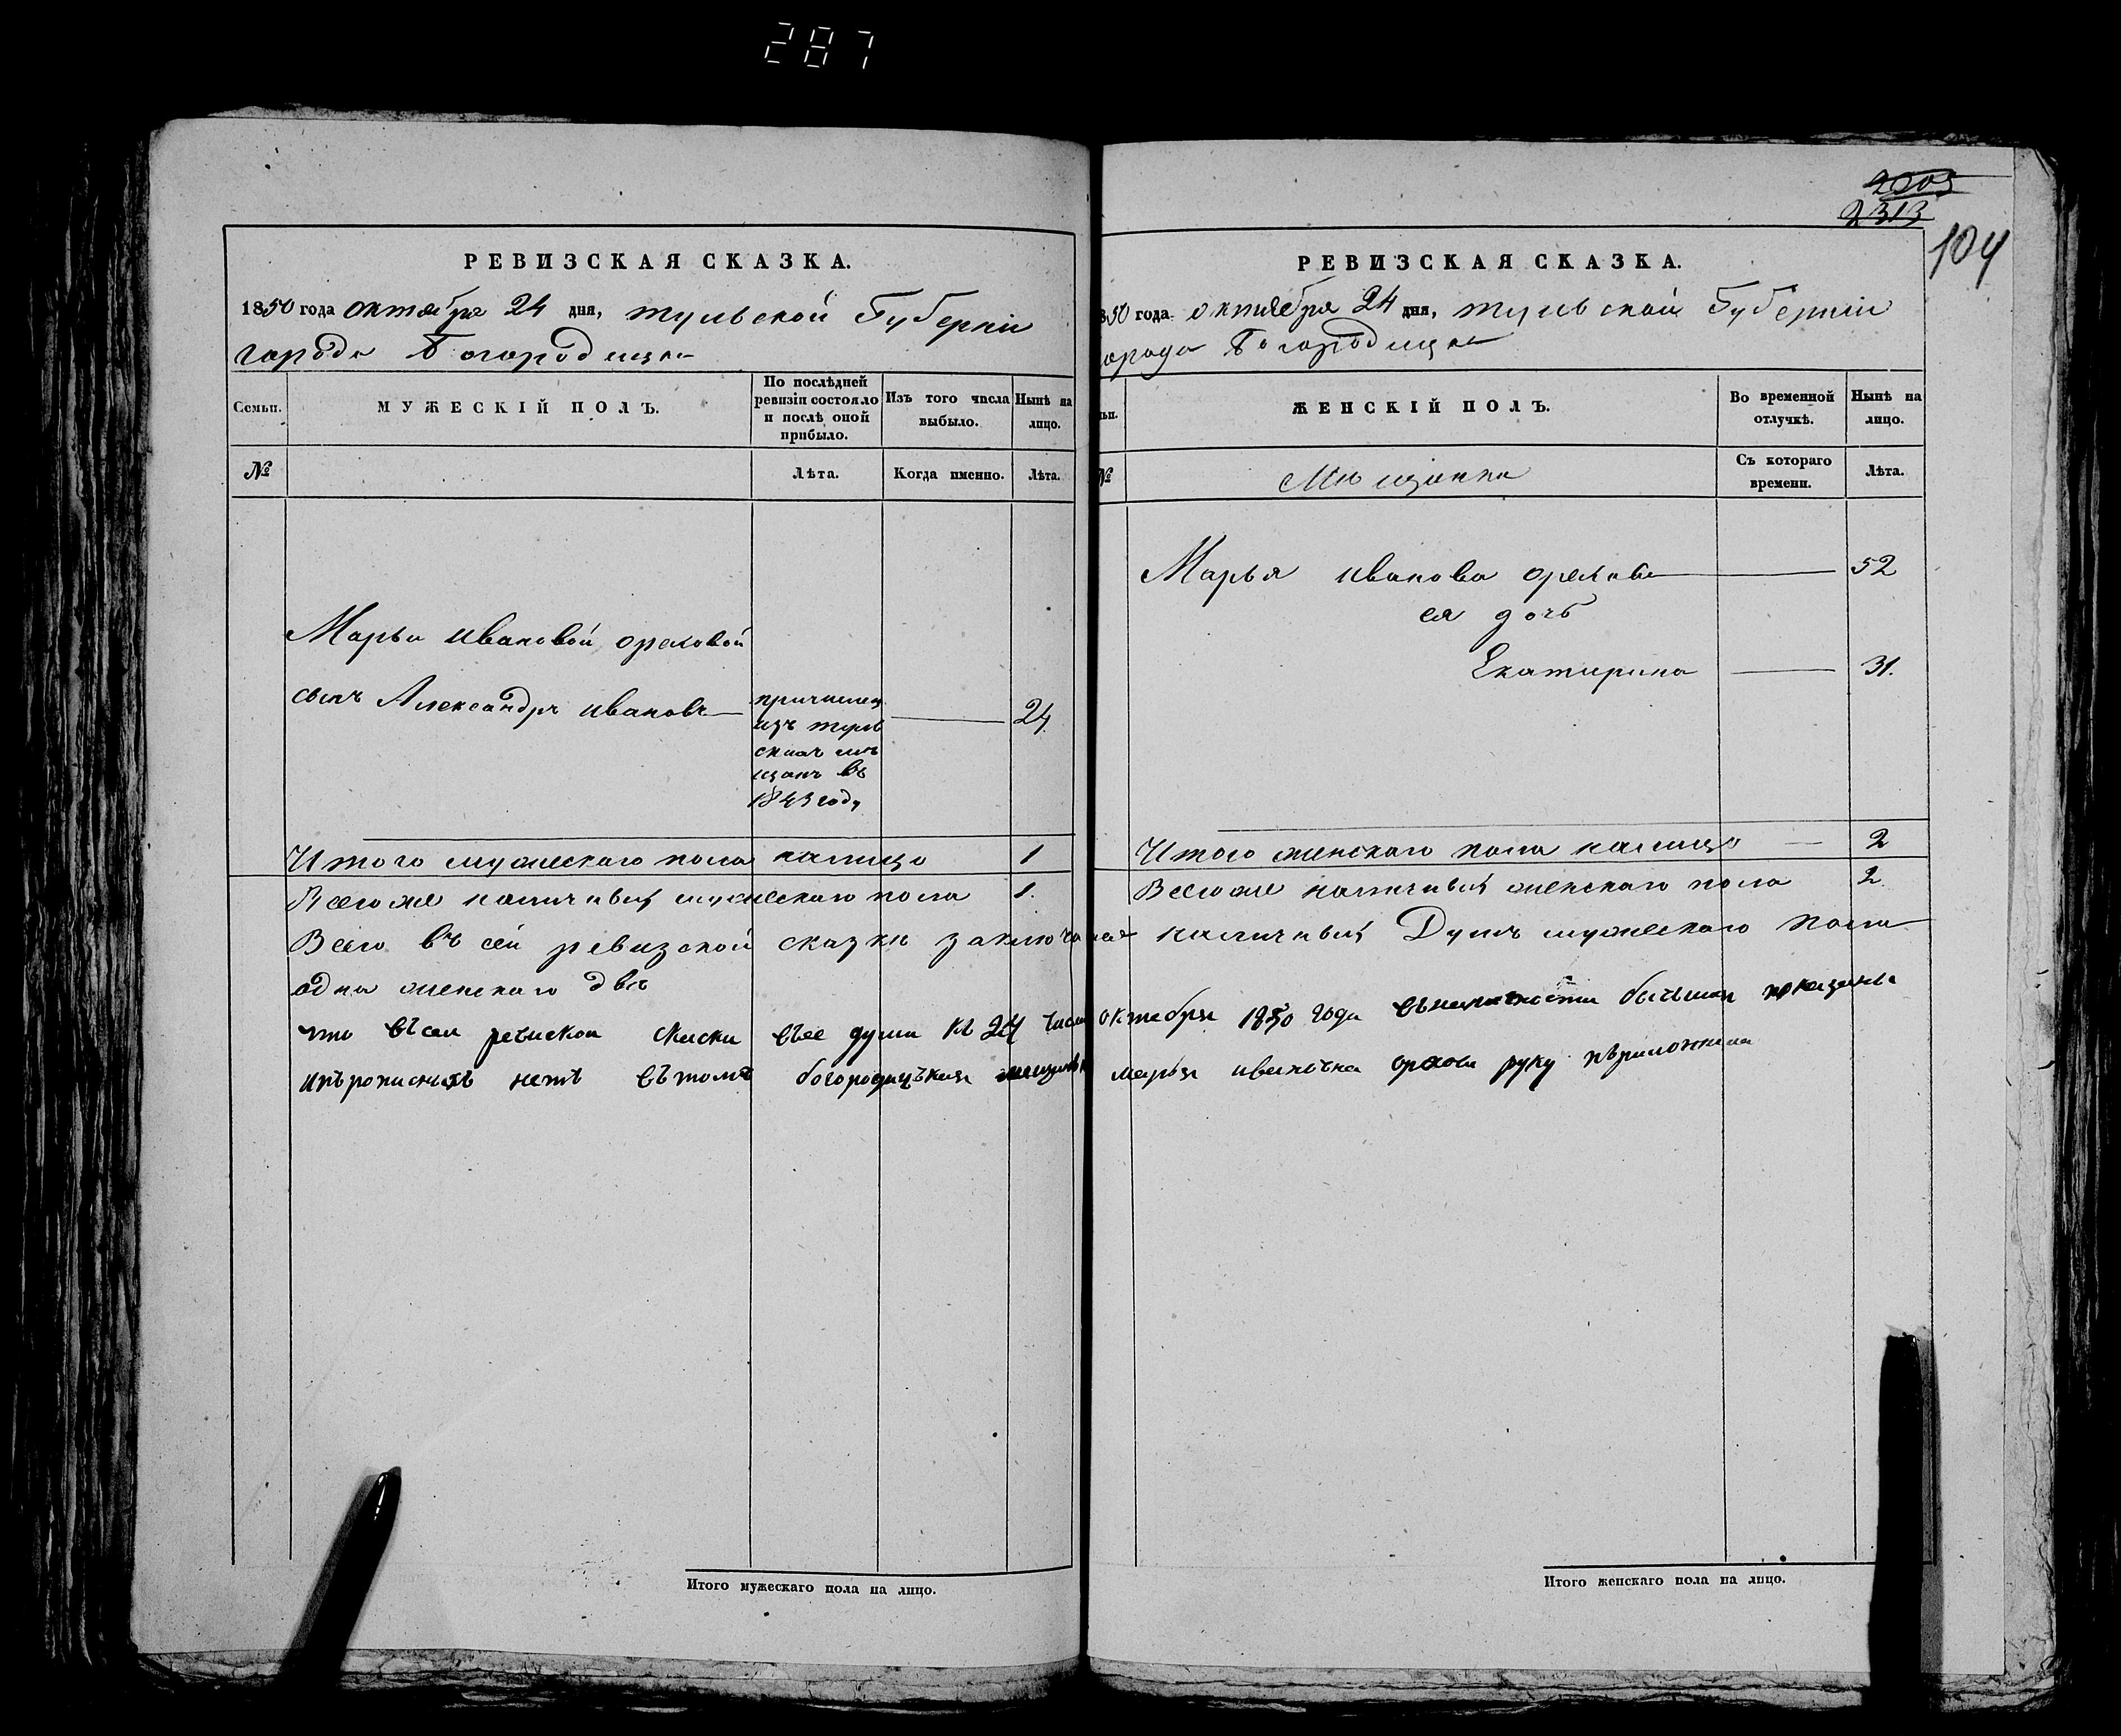 287
РЕВИЗСКАЯ СКАЗКА.
1850 года октября 24 дня, тульской Губерніи
города Богородицка
Семьи.
МУЖЕСКІЙ ПОЛЪ.
По послѣдней ревизіи состояло и послѣ оной прибыло.
Изъ того числа выбыло.
Нынѣ на лицо.
№
Лѣта.
Когда именно.
Лѣта.
Марьи Ивановой ореловой
сынъ Александръ Ивановъ
причислен
изъ туль
скихъ мѣ
щанъ въ
1843 году
24
Итого мужескаго пола налицо 1
Всего же наличныхъ мужескаго пола 1.
2003
2313
104
РЕВИЗСКАЯ СКАЗКА.
850 года октября 24 дня, тульской Губерніи
орода Богородицка
ьи.
ЖЕНСКІЙ ПОЛЪ.
Во временной отлучкѣ.
Нынѣ на лицо.
№
Мѣщанка
Съ котораго времени.
Лѣта.
Марья Иванова орелова 52
ея дочь
Екатирина 31.
Итого женскаго пола налицо 2
Всего же наличныхъ женскаго пола 2
Всего въ сей ревизской сказкѣ заключается наличныхъ Душъ мужескаго пола
одна женскаго двѣ
что въсеи ревиской скаски въсе души къ 24 числу октебря 1850 года въналичности бывшия показаны
ипърописныхъ нетъ вътомъ богородицъкая мещанка марья ивановна орлова руку пъриложила
Итого мужескаго пола на лицо.
Итого женскаго пола на лицо.